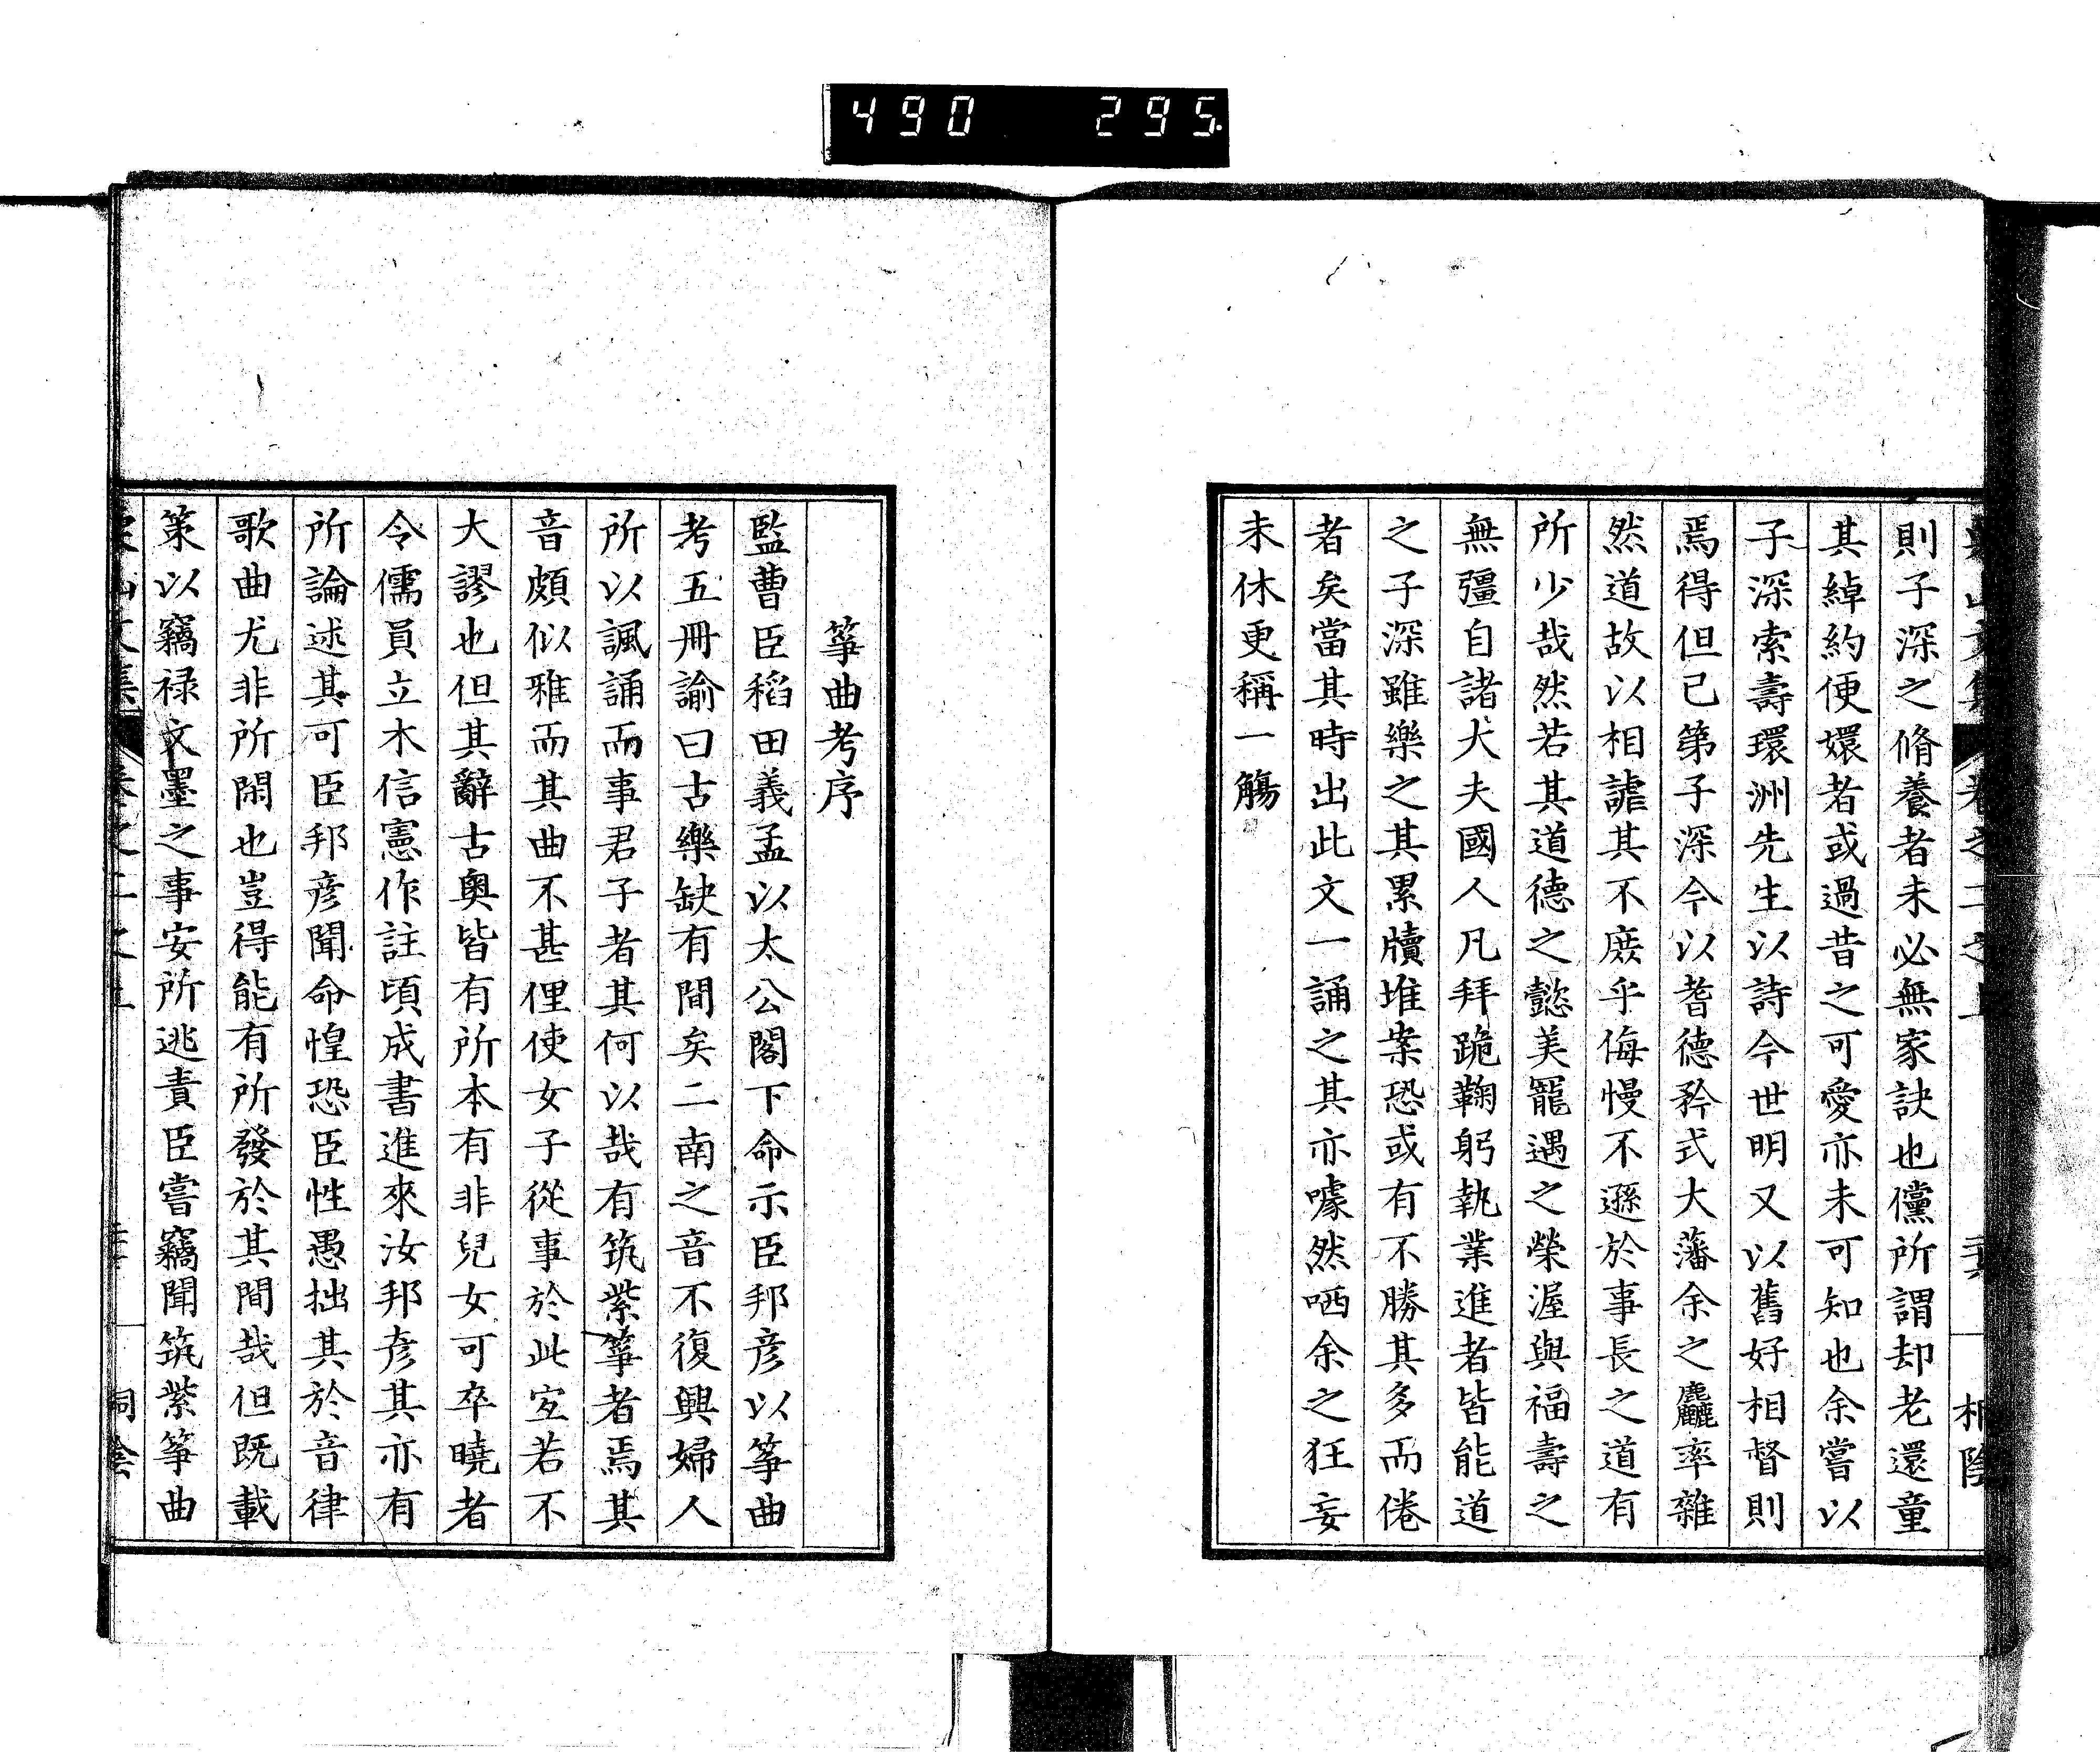 490 295.
則子深之脩養者未必無家訣也儻所謂却老還童
其綽約便嬛者或過昔之可愛亦未可知也余嘗以
子深索壽環洲先生以詩今世明又以舊好相督則
焉得但已第子深今以耆德矜式大藩余之麤率雜
然道故以相謔其不庶乎侮慢不遜於事長之道有
所少哉然若其道德之懿美寵遇之榮渥與福壽之
無彊自諸大夫國人凡拜跪鞠躬執業進者皆能道
之子深雖樂之其累牘堆案恐或有不勝其多而倦
者矣當其時出此文一誦之其亦噱然哂余之狂妄
未休更稱一觴
箏曲考序
監曹臣稻田義孟以太公閣下命示臣邦彦以箏曲
考五冊諭曰古樂缺有間矣二南之音不復興婦人
所以諷誦而事君子者其何以哉有筑紫箏者焉其
音頗似雅而其曲不甚俚使女子從事於此宐若不
大謬也但其辭古奥皆有所本有非兒女可卒曉者
令儒員立木信憲作註頃成書進來汝邦彦其亦有
所論述其可臣邦彦聞命惶恐臣性愚拙其於音律
歌曲尤非所閑也豈得能有所發於其間哉但既載
策以竊祿文墨之事安所逃責臣嘗竊聞筑紫箏曲